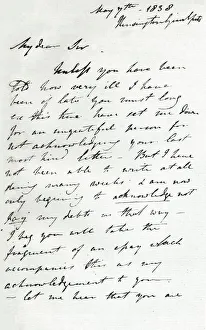 May 7th 1838
Kensington
My dear Sir
Unless you have been
told how very ill I have
been of late you must long
ere this time have set me down
for an ungrateful person for
not acknowledging your last
most kind letter - But I have
not been able to write at all
during many weeks & am now
only beginning to acknowledge not
pay my debts in that way -
I beg you will take the
fragment of an essay which
accompanies this as my
acknowledgement to you
- let me hear that you are